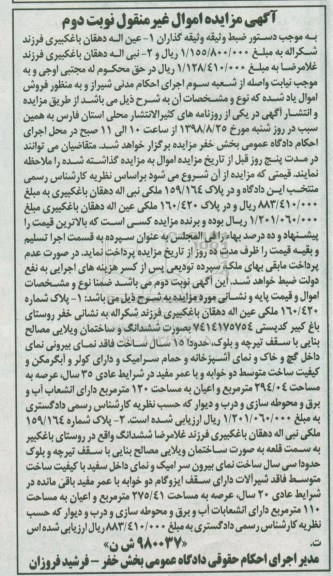 آگهی مزایده اموال غیر منقول نوبت دوم
به موجب دستور ضبط وثیقه وثیقه گذاران ۱- عین اله دهقان باغکبیری فرزند
شکراله به مبلغ ۱/۱۵۵/۸۰۰/۰۰۰ ریال و ۲- نبی اله دهقان باغکبیری فرزند
غلامرضا به مبلغ ۱/۱۲۸/۴۱۰/۰۰۰ ریال در حق محکوم له مجتبی اوجی و به
موجب نیابت واصله از شعبه سوم اجرای احکام مدنی شیراز و به منظور فروش
اموال یاد شده که نوع و مشخصات آن به شرح ذیل می باشد از طریق مزایده
و انتشار آگهی در یکی از روزنامه های کثیرالانتشار محلی استان فارس به همین
سبب در روز شنبه مورخ ۱۳۹۸/۸/۲۵ از ساعت ۱۰ الی ۱۱ صبح در محل اجرای
احکام دادگاه عمومی بخش خفر مزایده برگزار خواهد شد. متقاضیان می توانند
در مدت پنج روز قبل از تاریخ مزایده اموال به مزایده گذاشته شده را ملاحظه
نمایند. قیمتی که مزایده از آن شروع می شود براساس نظریه کارشناس رسمی
منتخب این دادگاه و در پلاک ۱۵۹/۱۶۴ ملکی نبی اله دهقان باغکبیری به مبلغ
۸۸۳/۴۱۰/۰۰۰ ریال و در پلاک ۱۶۰/۴۲۰ ملکی عین اله دهقان باغکبیری مبلغ
۱/۲۰۱/۰۶۰/۰۰۰ ریال بوده و برنده مزایده کسی است که بالاترین قیمت را
پیشنهاد و ده درصد بها را فی المجلس به عنوان سپرده به قسمت اجرا تسلیم
و بقیه قیمت را ظرف مدت ده روز از تاریخ مزایده پرداخت نماید. در صورت عدم
پرداخت مابقی بهای ملک سپرده تودیعی پس از کسر هزینه های اجرایی به نفع
دولت ضبط خواهد شد. این آگهی نوبت دوم می باشد ضمنا نوع و مشخصات
اموال و قیمت پایه و نشانی مورد مزایده به شرح ذیل می باشد: ۱- پلاک شماره
۱۶۰/۴۲۰ ملکی عین اله دهقان باغکبیری فرزند شکراله به نشانی خفر روستای
باغ کبیر کدپستی ۷۴۱۴۱۷۵۷۵۴ بصورت ششدانگ و ساختمان ویلایی مصالح
بنایی با سقف تیرچه و بلوک، حدودا ۱۵ سال ساخت فاقد نمای بیرونی نمای
داخل گچ و خاک و نمای آشپزخانه و حمام سرامیک و دارای کولر و آبگرمکن و
کیفیت ساخت متوسط دو خوابه و با عمر مفید در شرایط عادی ۳۵ سال، عرصه به
مساحت ۲۹۴/۰۴ مترمربع و اعیان به مساحت ۱۲۰ مترمربع دارای انشعاب آب و
برق و محوطه سازی و درب و دیوار که حسب نظریه کارشناس رسمی دادگستری
به مبلغ ۱/۲۰۱/۰۶۰/۰۰۰ ریال ارزیابی شده است. ۲- پلاک شماره ۱۵۹/۱۶۴
ملکی نبی اله دهقان باغکبیری فرزند غلامرضا ششدانگ واقع در روستای باغکبیر
به سمت قلعه به صورت ساختمان ویلایی مصالح بنایی با سقف تیرچه و بلوک
حدودا سی سال ساخت نمای بیرون سرامیک و نمای داخل سفید با کیفیت ساخت
متوسط فاقد شیرآلات دارای سقف ایزوگام دو خوابه با عمر مفید باقی مانده در
شرایط عادی ۲۰ سال، عرصه به مساحت ۲۷۵/۴۱ مترمربع و اعیان به مساحت
۱۱۰ مترمربع دارای انشعابات آب و برق و محوطه سازی و درب و دیوار که حسب
نظریه کارشناس رسمی دادگستری به مبلغ ۸۸۳/۴۱۰/۰۰۰ ریال ارزیابی شده اس
ت.
«۹۸۰۰۳۷ ش ن»
مدیر اجرای احکام حقوقی دادگاه عمومی بخش خفر - فرشید فروزان